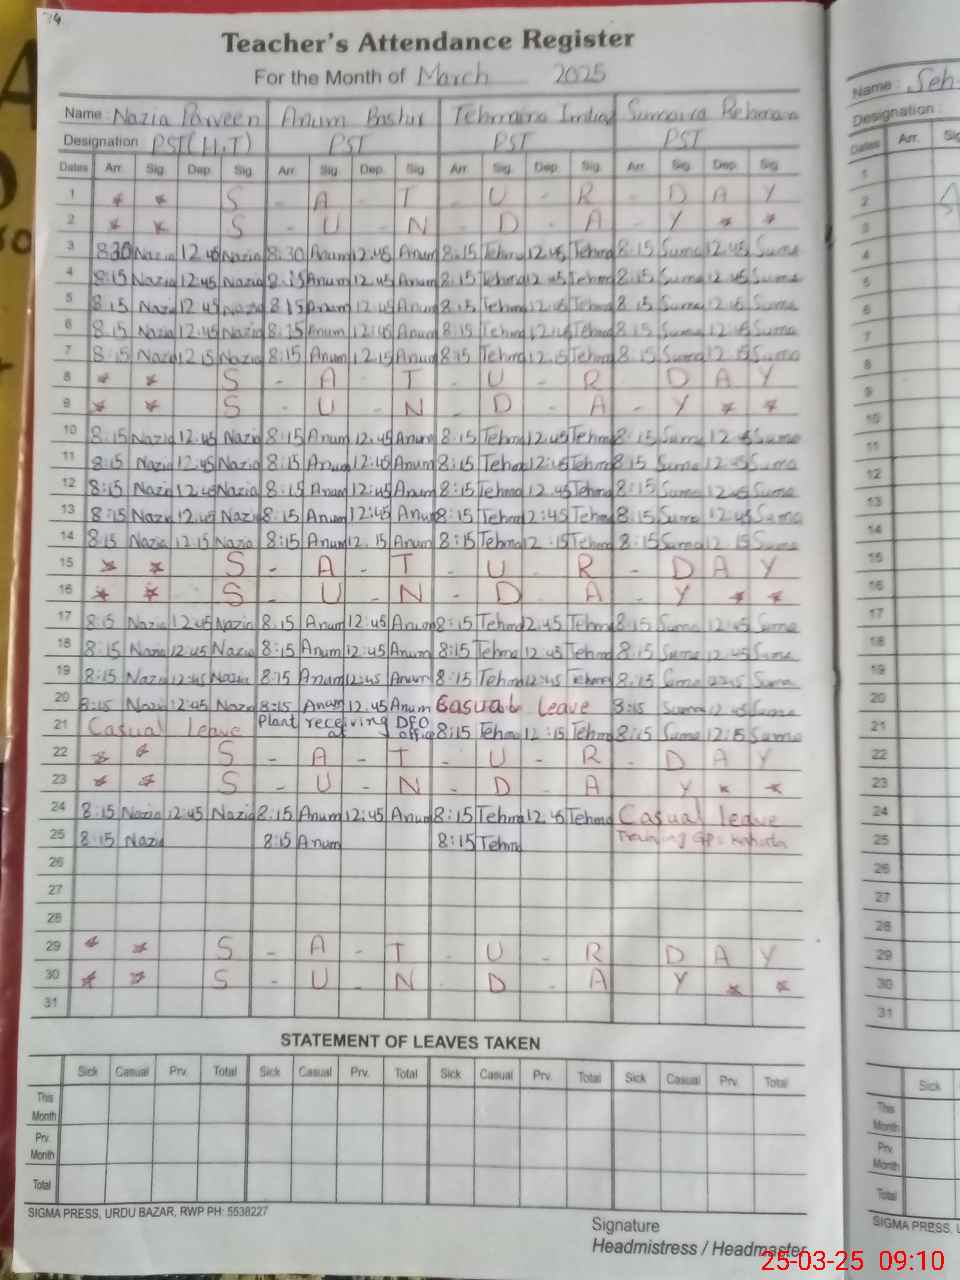 Teacher's Attendance Register
For the Month of March 2025
Name : Nazia Parveen Anum Bashir Tehmina Sumaira Rehman
Designation PST(H.T) PST PST PST
Dates Arr. Sig. Dep. Sig. Arr. Sig. Dep. Sig. Arr. Sig. Dep. Sig. Arr. Sig. Dep. Sig.
1 * * S - A - T - U - R - D A Y
2 * * S - U - N - D - A - Y * *
3 8:30 Nazia 12:45 Nazia 8:30 Anum 12:45 Anum 8:15 Tehm 12:45 Tehm 8:15 Suma 12:45 Suma
4 8:15 Nazia 12:45 Nazia 8:15 Anum 12:45 Anum 8:15 Tehm 12:45 Tehm 8:15 Suma 12:45 Suma
5 8:15 Nazia 12:45 Nazia 8:15 Anum 12:45 Anum 8:15 Tehm 12:45 Tehm 8:15 Suma 12:45 Suma
6 8:15 Nazia 12:45 Nazia 8:15 Anum 12:45 Anum 8:15 Tehm 12:45 Tehm 8:15 Suma 12:45 Suma
7 8:15 Nazia 12:15 Nazia 8:15 Anum 12:15 Anum 8:15 Tehm 12:15 Tehm 8:15 Suma 12:15 Suma
8 * * S - A - T - U - R D A Y
9 * * S - U - N - D - A - Y * *
10 8:15 Nazia 12:45 Nazia 8:15 Anum 12:45 Anum 8:15 Tehm 12:45 Tehm 8:15 Suma 12:45 Suma
11 8:15 Nazia 12:45 Nazia 8:15 Anum 12:45 Anum 8:15 Tehm 12:45 Tehm 8:15 Suma 12:45 Suma
12 8:15 Nazia 12:45 Nazia 8:15 Anum 12:45 Anum 8:15 Tehm 12:45 Tehm 8:15 Suma 12:45 Suma
13 8:15 Nazia 12:45 Nazia 8:15 Anum 12:45 Anum 8:15 Tehm 12:45 Tehm 8:15 Suma 12:45 Suma
14 8:15 Nazia 12:15 Nazia 8:15 Anum 12:15 Anum 8:15 Tehm 12:15 Tehm 8:15 Suma 12:15 Suma
15 * * S - A - T - U - R - D A Y
16 * * S - U - N - D - A - Y * *
17 8:15 Nazia 12:45 Nazia 8:15 Anum 12:45 Anum 8:15 Tehm 12:45 Tehm 8:15 Suma 12:45 Suma
18 8:15 Nazia 12:45 Nazia 8:15 Anum 12:45 Anum 8:15 Tehm 12:45 Tehm 8:15 Suma 12:45 Suma
19 8:15 Nazia 12:45 Nazia 8:15 Anum 12:45 Anum 8:15 Tehm 12:45 Tehm 8:15 Suma 12:45 Suma
20 8:15 Nazia 12:45 Nazia 8:15 Anum 12:45 Anum Casual leave 8:15 Suma 12:45 Suma
21 Casual leave Plant receiving at DEO office 8:15 Tehm 12:15 Tehm 8:15 Suma 12:15 Suma
22 * * S - A - T - U - R - D A Y
23 * * S - U - N - D - A Y * *
24 8:15 Nazia 12:45 Nazia 8:15 Anum 12:45 Anum 8:15 Tehm 12:45 Tehm Casual leave
25 8:15 Nazia 8:15 Anum 8:15 Tehm Training GPS Kahuta
26
27
28
29 * * S - A - T - U - R D A Y
30 * * S - U - N - D - A Y * *
31
STATEMENT OF LEAVES TAKEN
Sick Casual Prv. Total Sick Casual Prv. Total Sick Casual Prv. Total Sick Casual Prv. Total
This Month
Prv. Month
Total
SIGMA PRESS, URDU BAZAR, RWP PH: 5538227
Signature
Headmistress / Headmaster
Name : Seh
Designation :
Dates Arr. Sig
1
2
3
4
5
6
7
8
9
10
11
12
13
14
15
16
17
18
19
20
21
22
23
24
25
26
27
28
29
30
31
Sick
This Month
Prv. Month
Total
SIGMA PRESS,
25-03-25 09:10